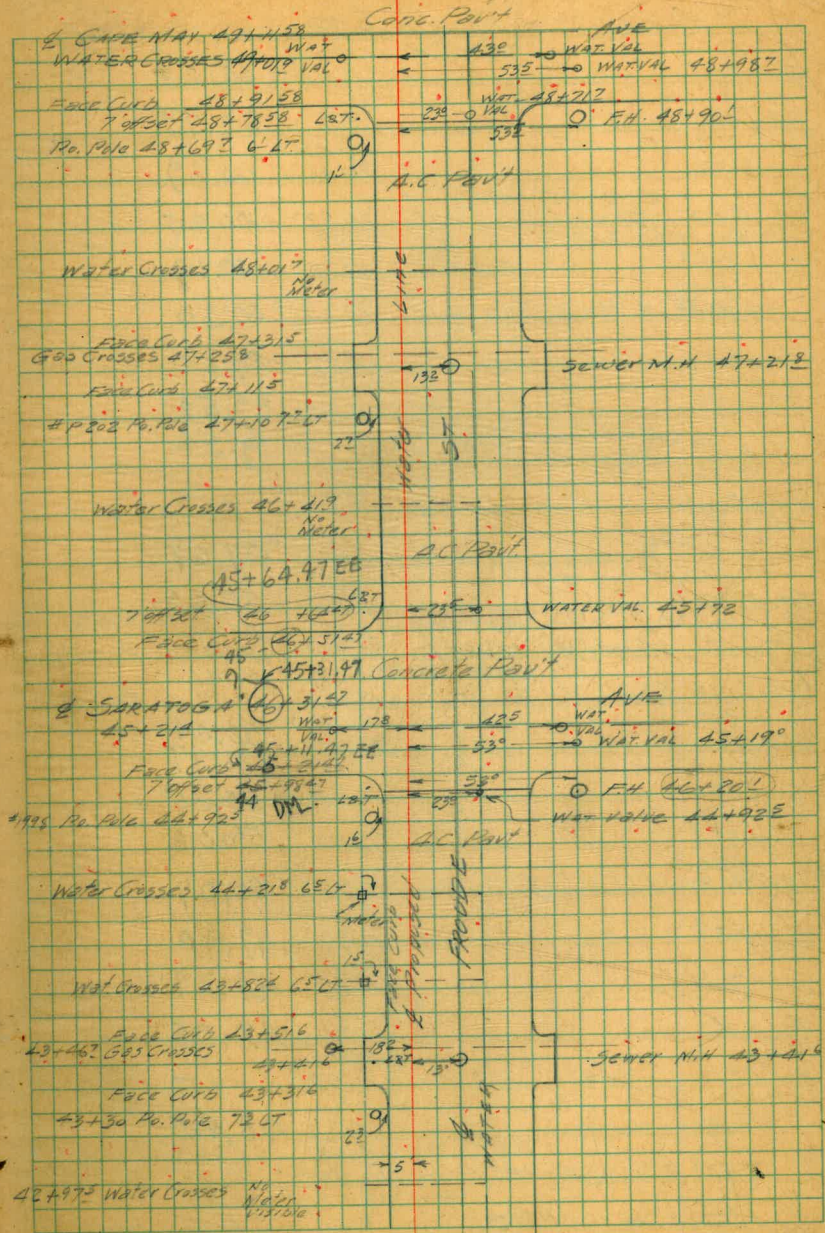 Conc. Pav't
₵ CAPE MAY 49+11⁵⁸ AVE
WATER CROSSES 49+01⁹ WAT VAL 43⁰ WAT. VAL
53⁵ WAT. VAL 48+98⁷
Face Curb 48+91⁵⁸
7' offset 48+78⁵⁸ L&T. 23⁰ WAT VAL 48+71⁷ F.H. 48+90¹
Po. Pole 48+69⁷ 6' LT 53²
1⁶
A.C Pav't
Water Crosses 48+01⁷ No Meter
LINE
Face Curb 47+31⁵
Gas Crosses 47+25⁸ Sewer M.H 47+21⁸
13²
Face Curb 47+11⁵
#P202 Po. Pole 47+10 7² LT
2²
ST
Water Crosses 46+41⁹ No Meter
A.C Pav't
45+64.47 EE
7' offset 46+64⁴⁷ L&T 23⁵ WATER VAL. 45+72
Face Curb 46+51⁴⁷
45
45+31.47 Concrete Pav't
₵ SARATOGA 46+31⁴⁷ AVE
45+21⁴ WAT VAL. 17⁸ 42⁵ WAT. VAL
53⁰ WAT VAL 45+19⁰
45+11.47 EE
Face Curb 45+21⁴⁷
7' offset 45+98⁴⁷ L&T 53⁰ F.H 46+20¹
44 DM. 23⁰
#1998 Po. Pole 44+92⁵ Wat Valve 44+92⁵
1⁶ A.C Pav't
Water Crosses 44+21⁸ 6⁵ LT
Meter
FROUDE
Face Curb
₵ Proposed
1⁵
Wat Crosses 43+82⁴ 6⁵ LT
Face Curb 43+51⁶
43+46⁷ Gas Crosses 18² Sewer M.H 43+41⁶
43+41⁶ L&T 13⁰
Face Curb 43+31⁶
43+30 Po. Pole 7² LT
2³
₵ WATER
5
42+97⁵ Water Crosses No Meter Visible